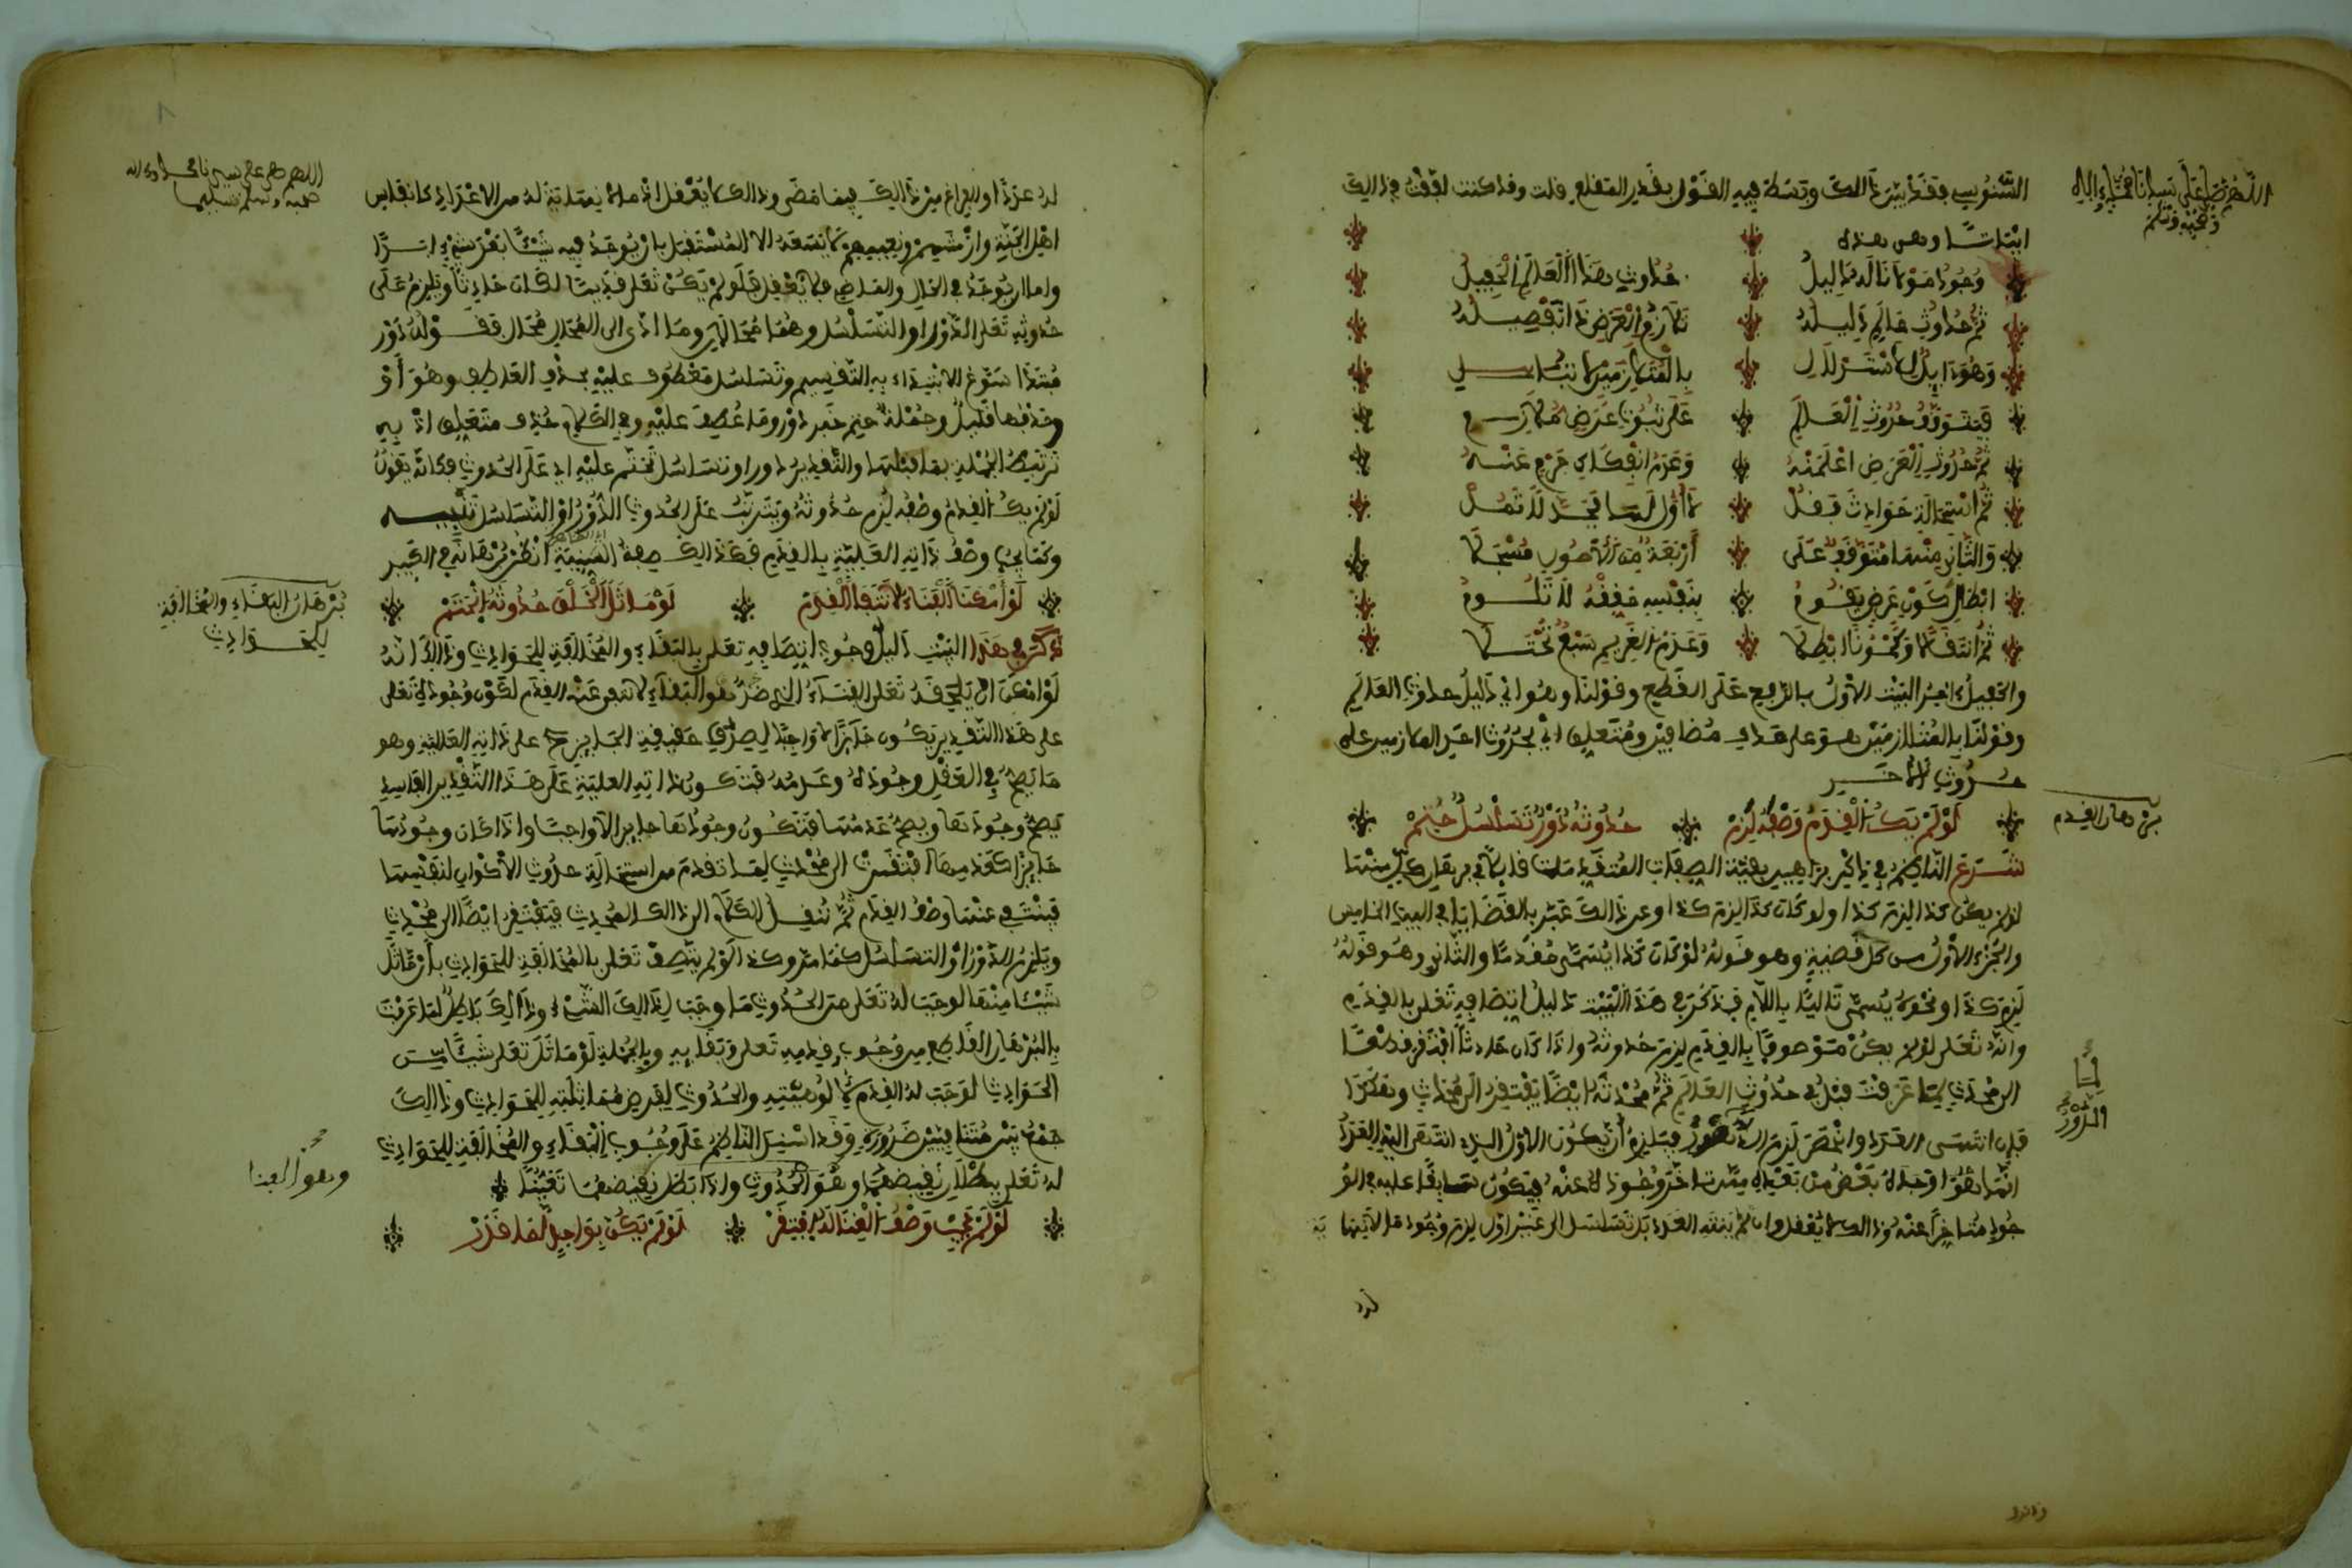 اللهم صل على سيدنا محمد وءاله
وصحبه وسلم
السنوسي فقد بين ذالك وبسط فيه القول بقدر المقلع قلت وقد كنت لفقت في ذالك
ابياتا وهي هذه
وجود مولانا له دليل حدوث هذا العالم الحفيل
ثم حدوث عالم دليله تلازم العرض ذا تفصيله
وهو ذا بدا الاستدلال بالمتلازمين لا تبال
فيتوقف حدوث العالم على ثبوت عرض ملازم
ثم حدوث العرض اعلمنه وعدم انفكاك جرم عنه
ثم استحالة حوادث فقل لا اول لها فجد لا تمل
والثاني منها متوقف على اربعة من الاصول مسجلا
ابطال كون عرض يقوم بنفسه حققه لا تلوم
ثم انتقالا وكمونا ابطلا وعدم القديم سبع تجتلا
والحفيل ءاخر البيت الاول بالرفع على القطع وقولنا وهو اي دليل حدوث العالم
وقولنا بالمتلازمين هو على حذف مضافين ومتعلق اي بحدوث احد المتلازمين على
حدوث الاخر
برهان القدم
لو لم يك القدم وصفه لزم حدوثه دور تسلسل حتم
شرع الناظم في ذكر براهين بقية الصفات المتقدمات قائلا في برهان كل منها
لو لم يكن كذا لزم كذا او لو كان كذا لزم كذا وعن ذالك عبر بالقضايا في البيت الخامس
والجزء الاول من كل قضية وهو قوله لو كان كذا يسمى مقدما والثاني وهو قوله
لزم كذا ونحوه يسمى تاليا باللام فذكر في هذا البيت دليل اتصافه تعلى بالقدم
وانه تعلى لو لم يكن موصوفا بالقدم لزم حدوثه واذا كان حادثا افتقر قطعا
الى محدث لما عرفت قبل في حدوث العالم ثم محدثه ايضا يفتقر الى محدث وهكذا
لما
الدور
فان انتهى العدد وانحصر لزم الدور فيلزم ان يكون الاول الذي انتهى اليه العدد
انما اوجده بعض من بعده ممن تاخر وجوده عنه فيكون سابقا عليه في الو
جود متاخرا عنه وذالك لا يعقل وان لم ينته العدد بل تسلسل الى غير اول لزم وجود ما لا نهاية
له
اللهم صل على سيدنا محمد وعلى ءاله
صحبه وسلم تسليما
له عددا والفراغ من ذالك فيما مضى وذالك لا يعقل اذ ما لا نهاية له من الاعداد كانفاس
اهل الجنة وازمنتهم ونعيمهم لا يسعه الا المستقبل بان يوجد فيه شيئا بعد شيء ابدا
واما ان يوجد في الحال والماضي فلا يعقل فلو لم يكن تعلى قديما لكان حادثا ويلزم على
حدوثه تعلى الدور او التسلسل وهما محالان وما ادى الى المحال محال فقوله دور
مبتدا سوغ الابتداء به التقسيم وتسلسل معطوف عليه بحذف العاطف وهو او
وحذفها قليل وجملة حتم خبر دور وما عطف عليه وفي الكلام حذف متعلق اذ به
ترتبط الجملة بما قبلها والتقدير دور او تسلسل تحتم عليه اي على الحدوث فكانه يقول
لو لم يك القدم وصفه لزم حدوثه ويترتب على الحدوث الدور او التسلسل تنبيه
وكما يجب وصف ذاته العلية بالقدم فكذالك صفاته السنية انظر برهانه في الكبير
برهان البقاء والمخالفة
للحوادث
لو امكن الفناء لانتفى القدم لو ماثل الخلق حدوثه انحتم
ذكر في هذا البيت دليل وجوب اتصافه تعلى بالبقاء والمخالفة للحوادث وذالك انه
لو امكن ان يلحقه تعلى الفناء الذي هو ضد البقاء لانتفى عنه القدم لكون وجوده تعلى
على هذا التقدير يكون جائزا لا واجبا لصدق حقيقة الجائز ح على ذاته العلية وهو
ما يصح في العقل وجوده وعدمه فتكون ذاته العلية على هذا التقدير الفاسد
يصح وجودها ويصح عدمها فيكون وجودها جائزا لا واجبا واذا كان وجودها
جائزا كعدمها افتقرت الى محدث لما تقدم من استحالة حدوث الاكوان لنفسها
فينتفي عنها وصف القدم ثم ننقل الكلام الى ذالك المحدث فيفتقر ايضا الى محدث
ويلزم الدور او التسلسل كما مر وكذا لو لم يتصف تعلى بالمخالفة للحوادث بان ماثل
شيئا منها لوجب له تعلى من الحدوث ما وجب لذالك الشيء وذالك باطل لما عرفت
بالبرهان القاطع من وجوب قدمه تعلى وبقائه وبالجملة لو ماثل تعلى شيئا من
الحوادث لوجب له القدم لالوهيته والحدوث لفرض مماثلته للحوادث وذالك
جمع بين متنافيين ضرورة وقد استدل الناظم على وجوب البقاء والمخالفة للحوادث
وهو الفنا
له تعلى ببطلان نقيضهما وهو الحدوث واذا بطل نقيضهما تعينا
لو لم يجب وصف الغنا له افتقر لو لم يكن بواحد لما قدر